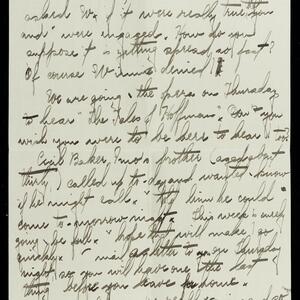 asked W. if it were really true you
and I were engaged. How do you
suppose it is getting spread, so fast?
Of course W denied it
We are going to the opera on Thursday
to hear "The Tales of Hoffman". Don't you
wish you were to be here to hear it too.
Baker, brother aged about
thirty, called up to-day and wanted to know
if he might call. I told him he could
come to-morrow night. This week is surely
going to be full. I hope that will make go
quickly. I mail a letter to you on Thursday
night so you will have one the last
thing before you leave home.